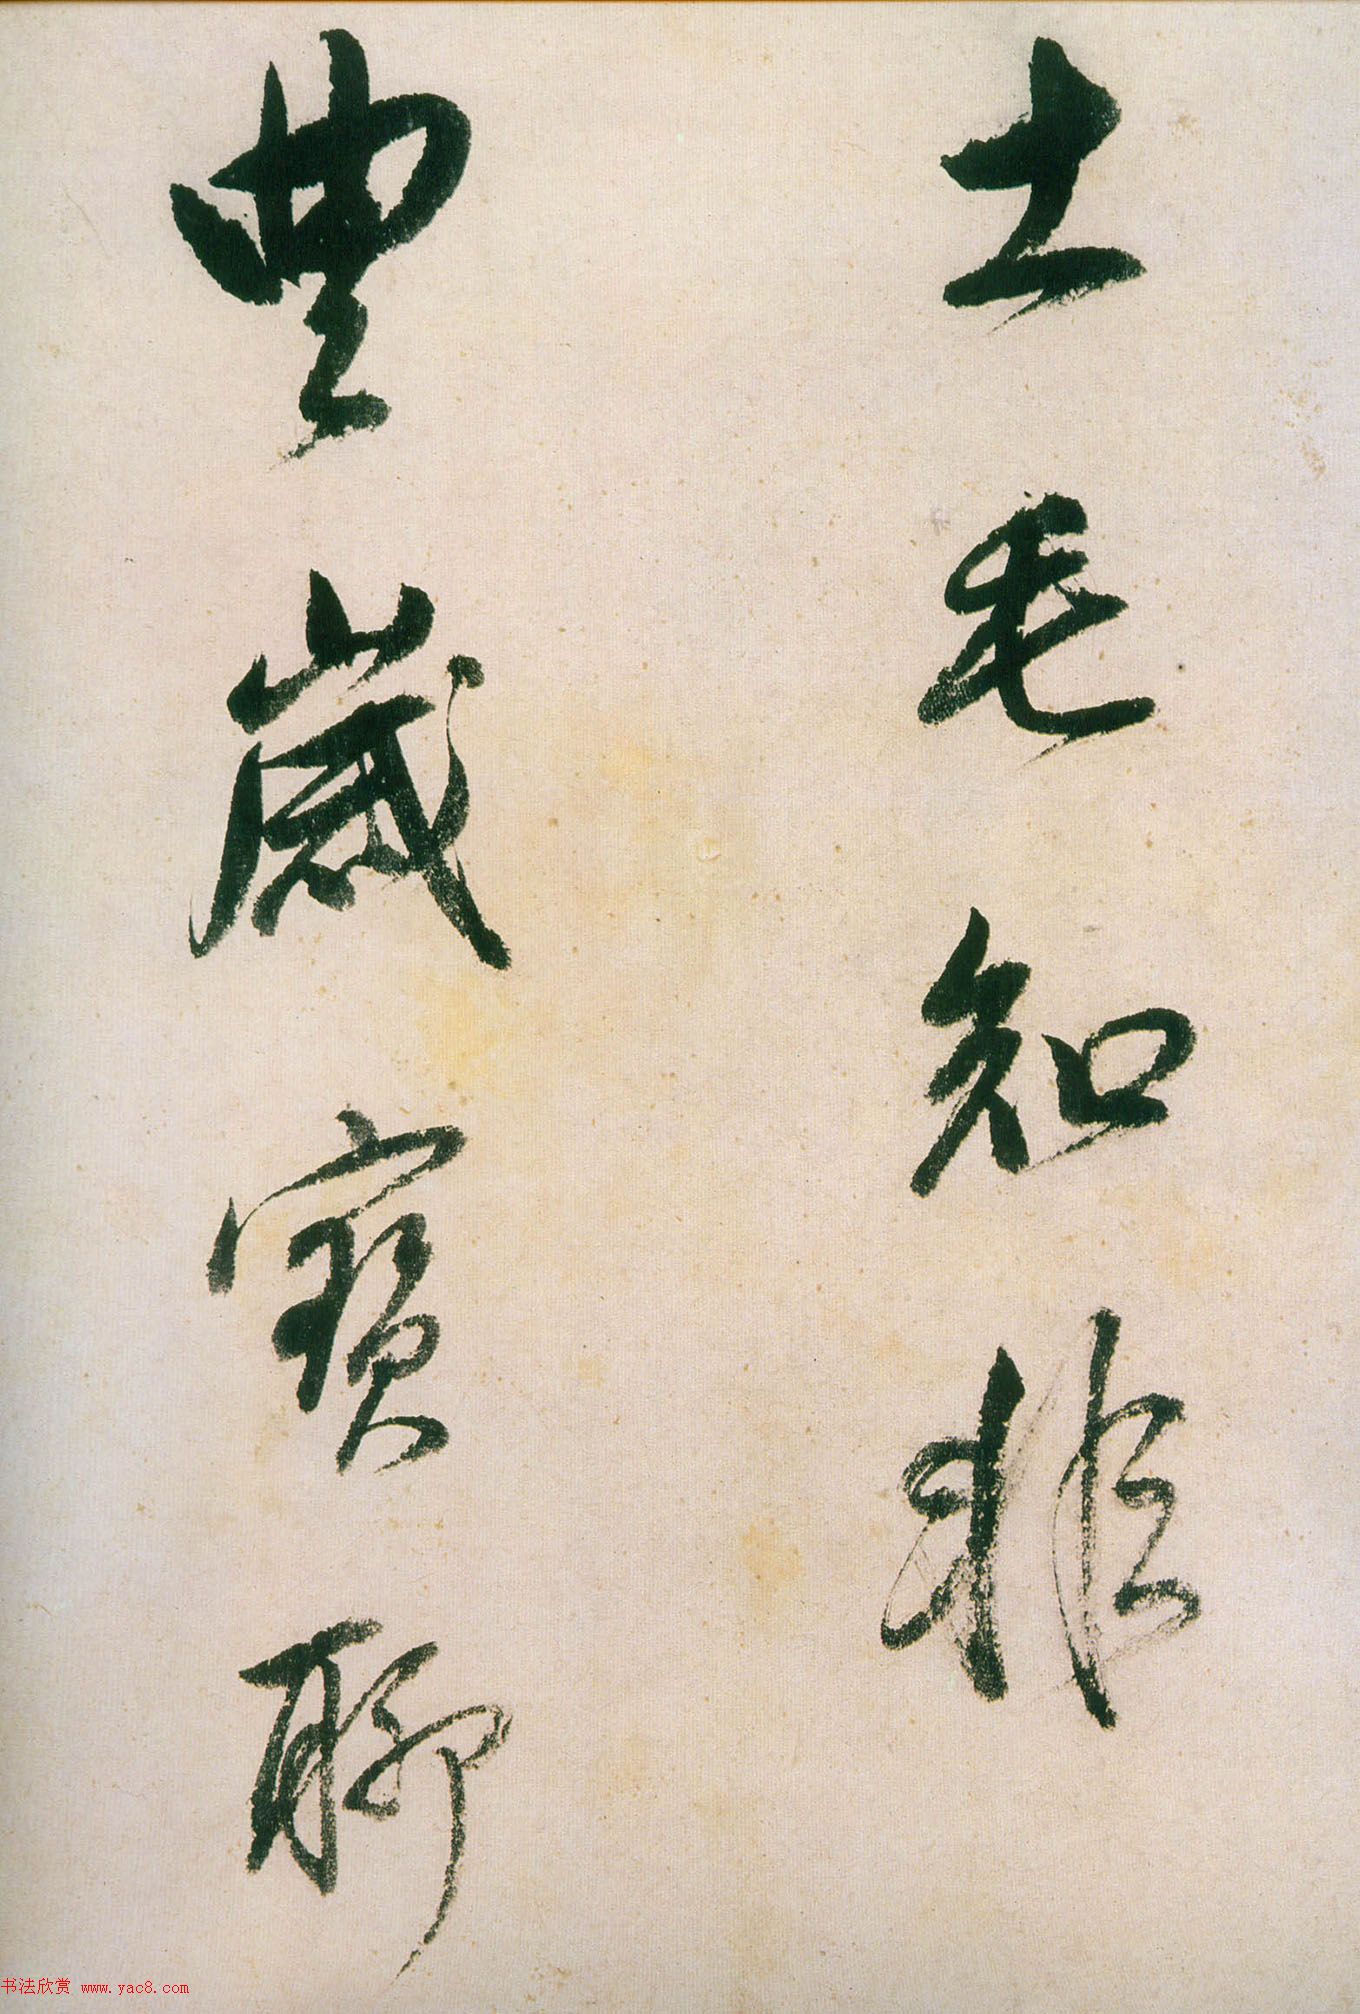 土毛知非
豐歲寶聊
书法欣赏 www.yac8.com